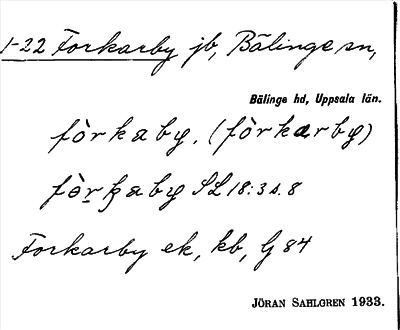 1-22 Forkarby jb, Bälinge sn,
Bälinge hd, Uppsala län.
fòrkaby. (fòrkarby)
SL 18:3 s. 8
Forkarby ek, kb, G 84
JÖRAN SAHLGREN 1933.